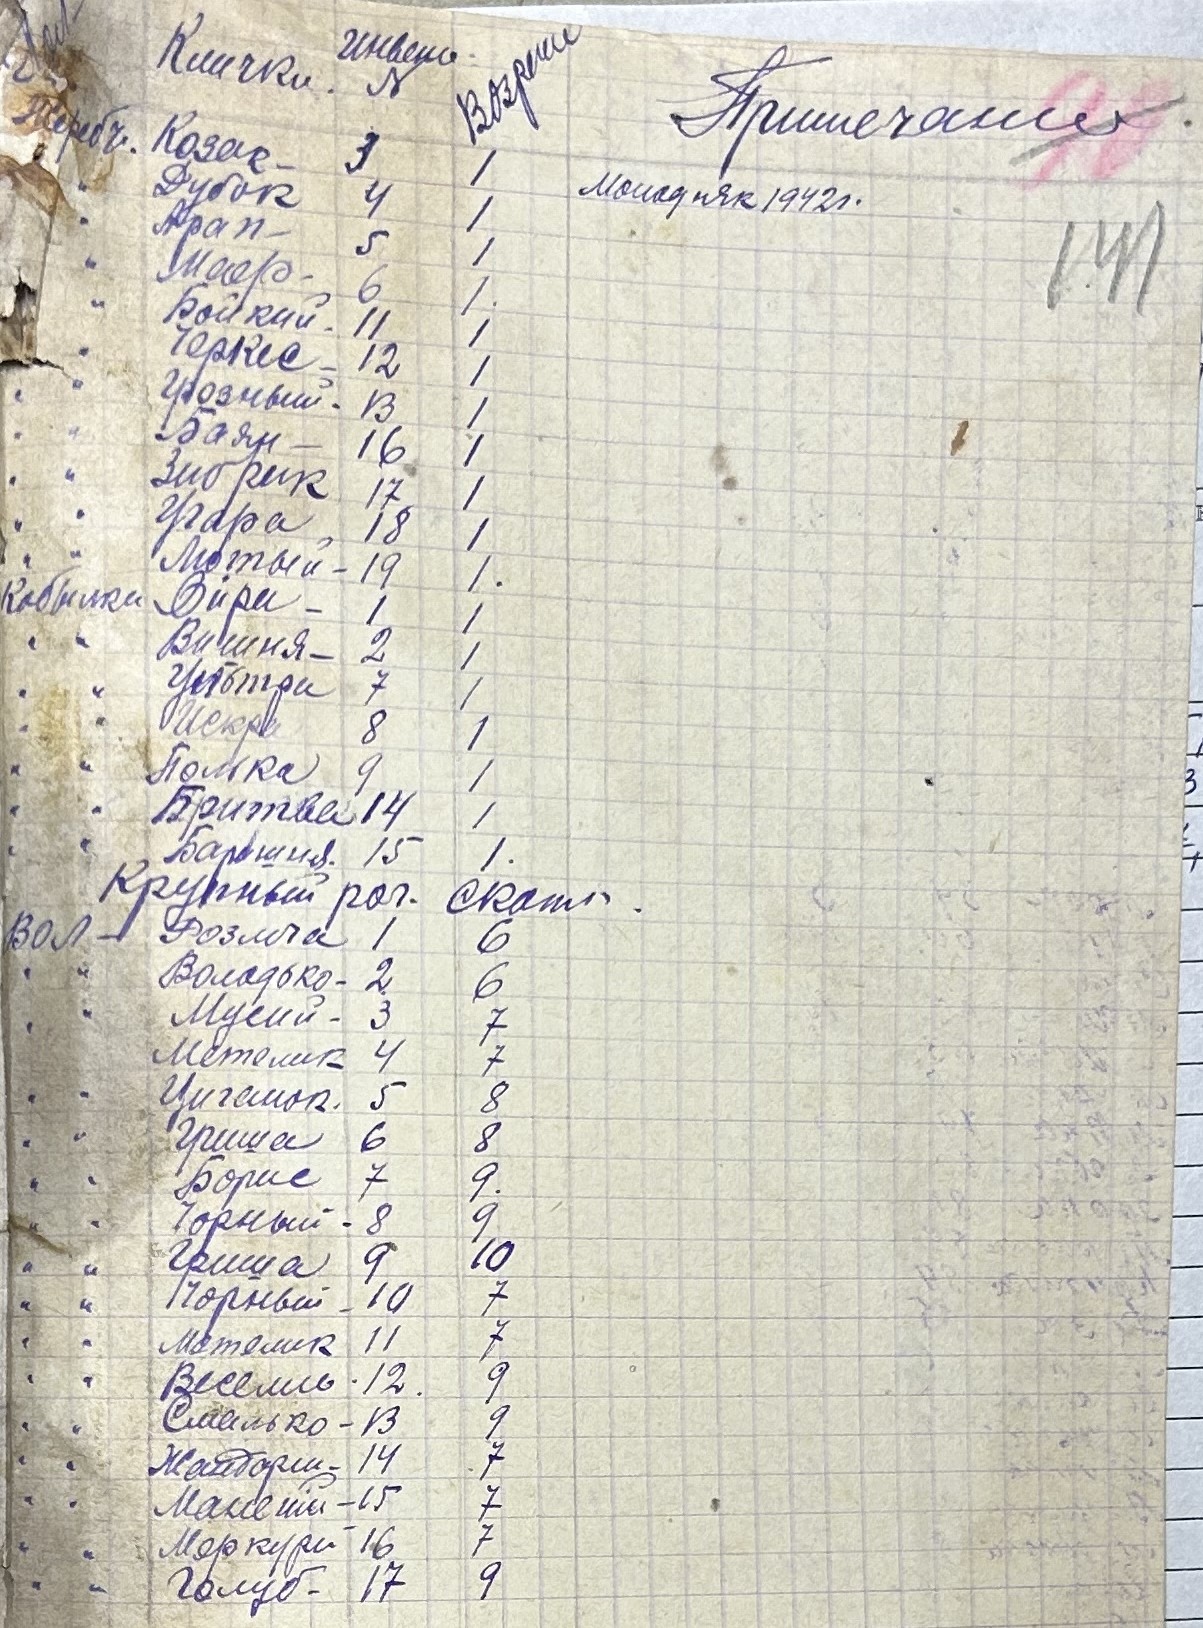 Кличка. Инвен. N Возраст Примечание
Жеребч. Козак - 3 1
" Дубок 4 1 Молодняк 1942 г.
" Арап - 5 1
" Маяр - 6 1.
" Бойкий. 11 1
" Черкес - 12 1
" " Грозный - 13 1
" " Баян - 16 1
" " Зибрик 17 1
" " Угара 18 1
" " Лютый - 19 1.
Кобылки - 1 1
" " Вишня - 2 1
" " 7 1
" " Искра 8 1
" " Полька 9 1
" " Бритва 14 1
" " Барышня. 15 1.
Крупный рог. скот.
Вол - Розлуча 1 6
" " Володько - 2 6
" " Мусий - 3 7
Метелик 4 7
" " Циганок. 5 8
" " Гриша 6 8
" " Борис 7 9.
" " Чорный - 8 9
" " Гриша 9 10
" " Чорный - 10 7
" " Метелик 11 7
" " 12. 9
" " Смалько - 13 9
" " 14 7
" " - 15 7
" " Меркурий 16 7
" " Голуб - 17 9
141